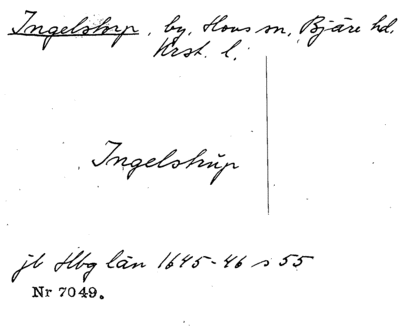 Ingelstorp, by, Hovs sn, Bjäre hd.
Krst. l.
Ingelstrup
jb Hbg län 1645-46 s 55
Nr 7049.